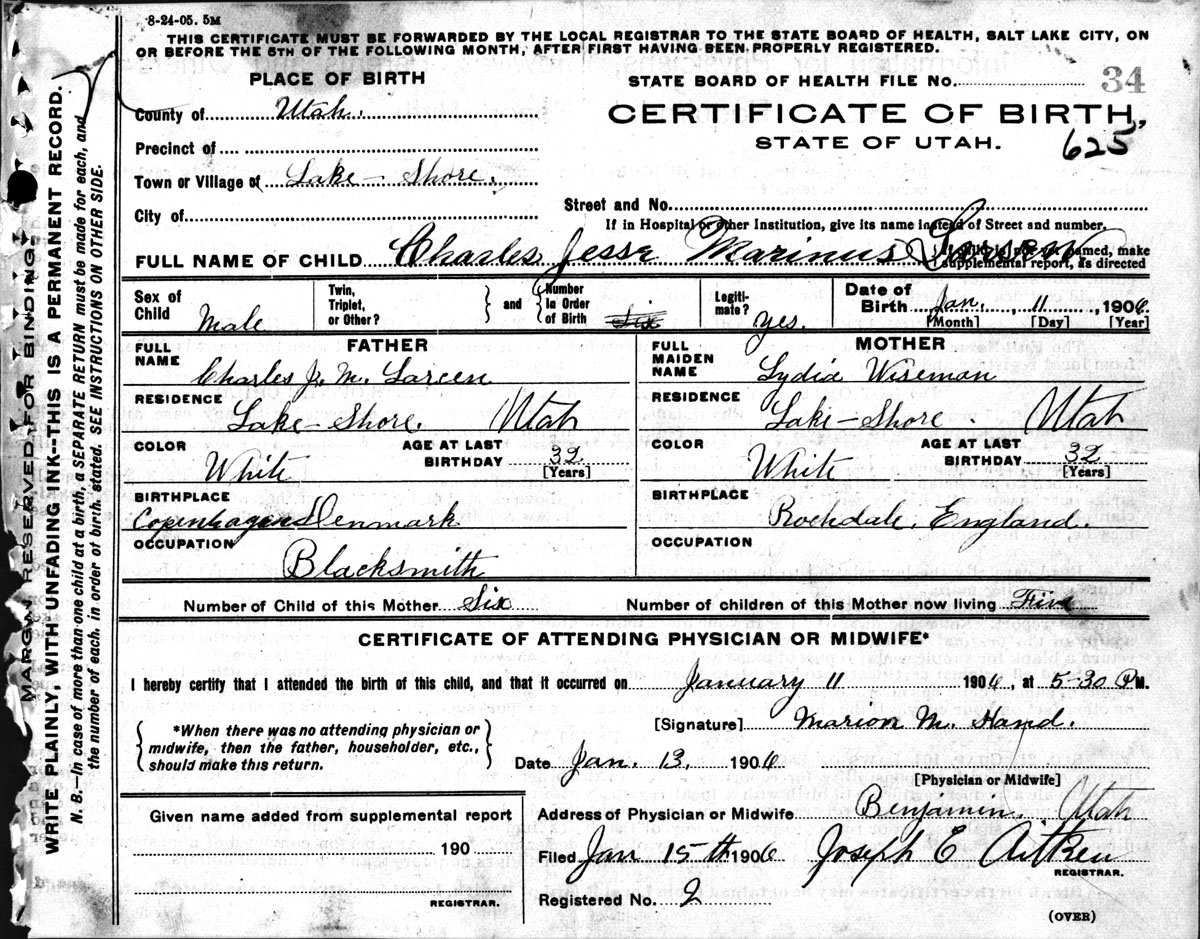 8-24-05. 5M
THIS CERTIFICATE MUST BE FORWARDED BY THE LOCAL REGISTRAR TO THE STATE BOARD OF HEALTH, SALT LAKE CITY, ON
OR BEFORE THE 5TH OF THE FOLLOWING MONTH, AFTER FIRST HAVING BEEN PROPERLY REGISTERED.
PLACE OF BIRTH
County of Utah.
Precinct of
Town or Village of Lake-Shore.
City of
STATE BOARD OF HEALTH FILE No. 34
CERTIFICATE OF BIRTH,
STATE OF UTAH. 625
Street and No.
If in Hospital or other Institution, give its name instead of Street and number.
FULL NAME OF CHILD Charles Jesse Marinus Larsen
named, make
supplemental report, as directed
Sex of Child Male
Twin, Triplet, or Other? } and { Number in Order of Birth Six
Legiti-mate? Yes.
Date of Birth Jan. 11, 1906
[Month] [Day] [Year]
FATHER
FULL NAME Charles J. M. Larsen
RESIDENCE Lake-Shore. Utah
COLOR White AGE AT LAST BIRTHDAY 32 [Years]
BIRTHPLACE Copenhagen Denmark
OCCUPATION Blacksmith
MOTHER
FULL MAIDEN NAME Lydia Wiseman
RESIDENCE Lake-Shore. Utah
COLOR White AGE AT LAST BIRTHDAY 32 [Years]
BIRTHPLACE Rochdale, England.
OCCUPATION
Number of Child of this Mother Six Number of children of this Mother now living Five
CERTIFICATE OF ATTENDING PHYSICIAN OR MIDWIFE*
I hereby certify that I attended the birth of this child, and that it occurred on January 11 1906, at 5-30 P M.
{ *When there was no attending physician or
midwife, then the father, householder, etc.,
should make this return. }
[Signature] Marion M. Hand.
Date Jan. 13, 1906
[Physician or Midwife]
Given name added from supplemental report
190
REGISTRAR.
Address of Physician or Midwife Benjamin. Utah
Filed Jan 15th 1906 Joseph E Aitken
REGISTRAR.
Registered No. 2
(OVER)
MARGIN RESERVED FOR BINDING
WRITE PLAINLY, WITH UNFADING INK--THIS IS A PERMANENT RECORD.
N. B.—In case of more than one child at a birth, a SEPARATE RETURN must be made for each, and
the number of each, in order of birth, stated. SEE INSTRUCTIONS ON OTHER SIDE.